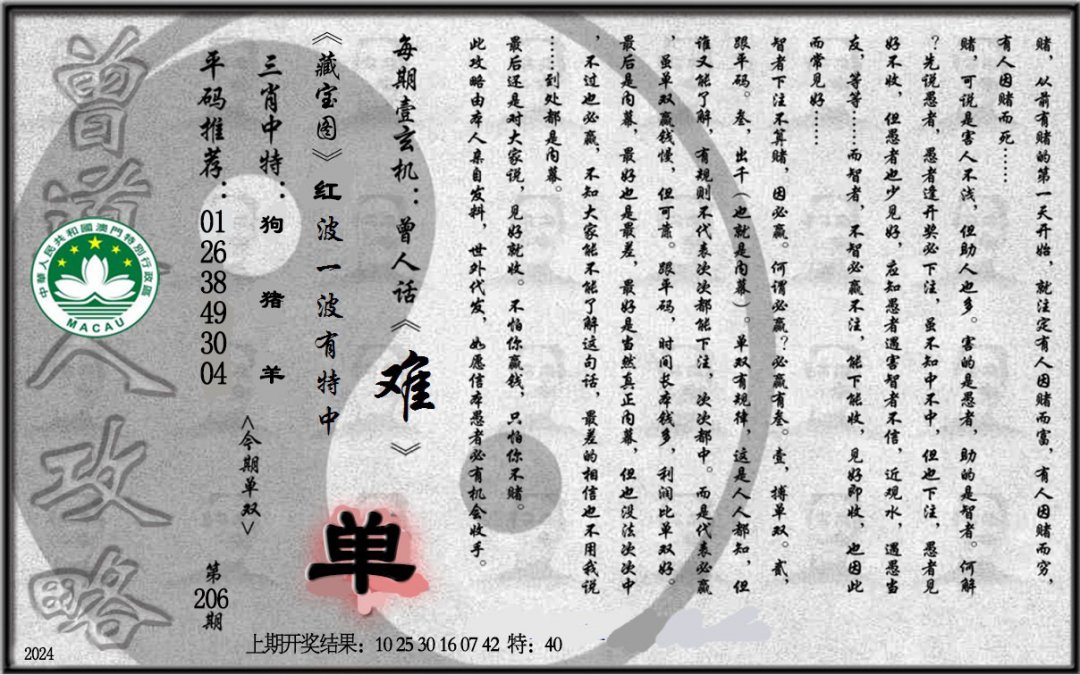 赌，从前有赌的第一天开始，就注定有人因赌而富，有人因赌而穷，
有人因赌而死……
赌，可说是害人不浅，但助人也多。害的是愚者，助的是智者。何解
？先说愚者，愚者逢开奖必下注，虽不知中不中，但也下注，愚者见
好不收，但愚者也少见好，应知愚者遇害智者不信，近观水，遇愚当
友，等等……而智者，不智必赢不注，能下能收，见好即收，也因此
而常见好……
智者下注不算赌，因必赢。何谓必赢？必赢有叁。壹，搏单双。贰，
跟平码。叁，出千（也就是内幕）。单双有规律，这是人人都知，但
谁又能了解，有规则不代表次次都能下注，次次都中。而是代表必赢
，虽单双赢钱慢，但可靠。跟平码，时间长本钱多，利润比单双好。
最后是内幕，最好也是最差，最好是当然真正内幕，但也没法次次中
，不过也必赢，不知大家能不能了解这句话，最差的相信也不用我说
……到处都是内幕。
最后还是对大家说，见好就收。不怕你赢钱，只怕你不赌。
此攻略由本人亲自发料，世外代发，如愿信本愚者必有机会收手。
每期壹玄机：曾人话《难》
《藏宝图》红波一波有特中
三肖中特：狗 猪 羊
平码推荐：01 26 38 49 30 04
<今期单双>
单
第206期
曾道人攻略
中華人民共和國澳門特別行政區
MACAU
上期开奖结果：10 25 30 16 07 42 特：40
2024